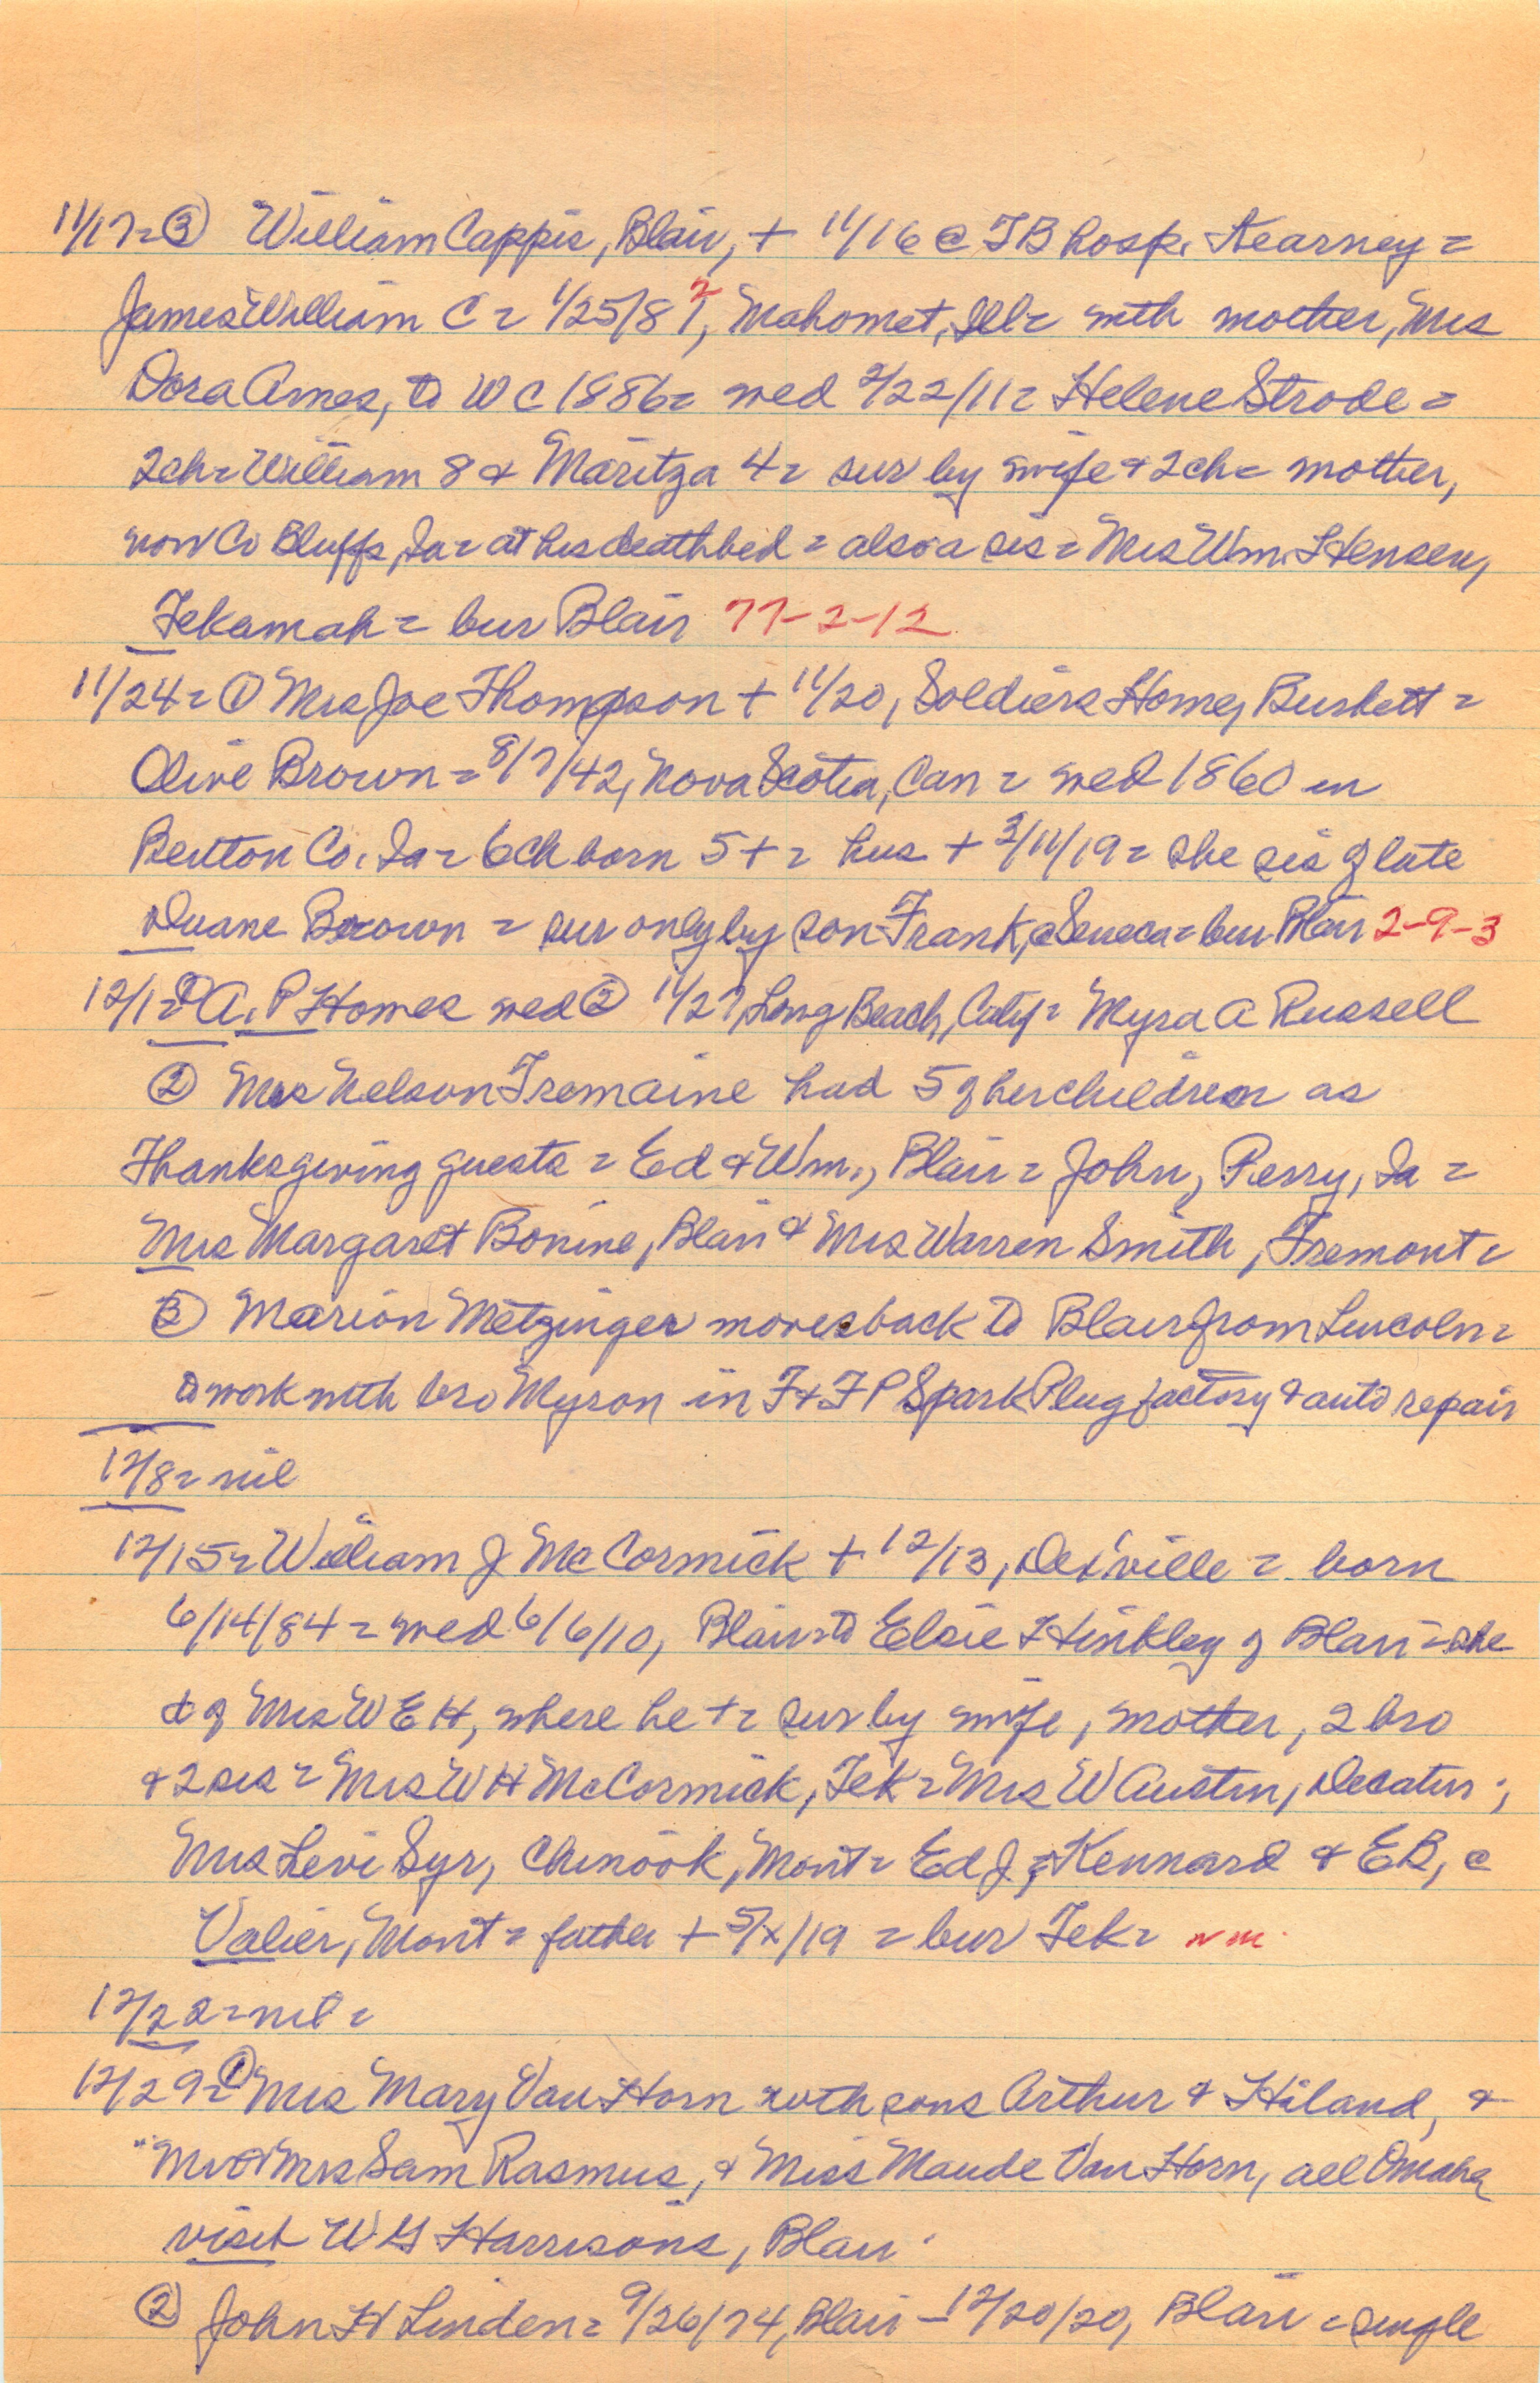 11/17= ③ William Cappis, Blair, + 11/16 @ TB hosp. Kearney =
James William C = 1/25/8 2, Mahomet, Ill = with mother, Mrs
Dora Ames, to W C 1886 = wed 2/22/11 = Helene Strode =
2ch = William 8 & Maritza 4 = sur by wife & 2 ch = mother,
now Co Bluffs, Ia = at his deathbed = also a sis = Mrs Wm. Hensen,
Tekamah = bur Blair 77-2-12
11/24 = ① Mrs Joe Thompson + 11/20, Soldiers Home, Burkett =
Olive Brown = 8/7/42, Nova Scotia, Can = wed 1860 in
Benton Co. Ia = 6 ch born 5 + = hus + 3/11/19 = she sis of late
Duane Brown = sur only by son Frank, @ Seneca = bur Blair 2-9-3
12/1 = ① A. P Homes wed ② 11/27, Long Beach, Calif = Myra A Russell
② Mrs Nelson Tremaine had 5 of her children as
Thanksgiving guests = Ed & Wm., Blair = John, Perry, Ia =
Mrs Margaret Bonine, Blair & Mrs Warren Smith, Fremont =
③ Marion Metzinger moves back to Blair from Lincoln =
to work with bro Myron in F & F P Spark Plug factory & auto repair
12/8 = nil
12/15 = William J McCormick + 12/13, De'ville = born
6/14/84 = wed 6/6/10, Blair = to Elsie Hinkley of Blair = she
d of Mrs W E H, where he + = sur by wife, mother, 2 bro
& 2 sis = Mrs W H McCormick, Tek = Mrs W Austin, Decatur;
Mrs Levi Syr, Chinook, Mont = Ed J, Kennard & EB, @
Valier, Mont = father + 5/x/19 = bur Tek = nm
12/22 = nil =
12/29 = ① Mrs Mary Van Horn with sons Arthur & Hiland, &
Mr & Mrs Sam Rasmus, & Miss Maude Van Horn, all Omaha
visit W G Harrisons, Blair
② John H Linden = 9/26/74, Blair - 12/20/20, Blair = single